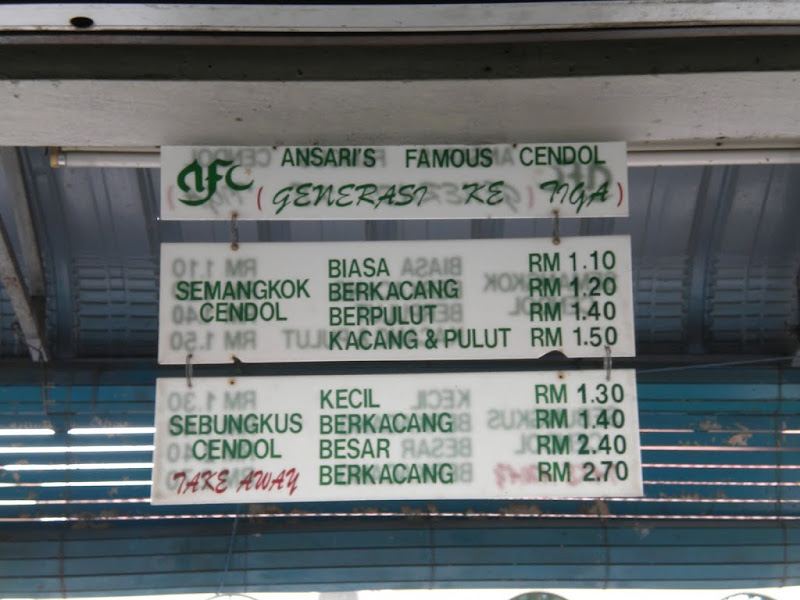 AFC ANSARI'S FAMOUS CENDOL
(GENERASI KE TIGA)
SEMANGKOK CENDOL
BIASA RM 1.10
BERKACANG RM 1.20
BERPULUT RM 1.40
KACANG & PULUT RM 1.50
SEBUNGKUS CENDOL
TAKE AWAY
KECIL RM 1.30
BERKACANG RM 1.40
BESAR RM 2.40
BERKACANG RM 2.70